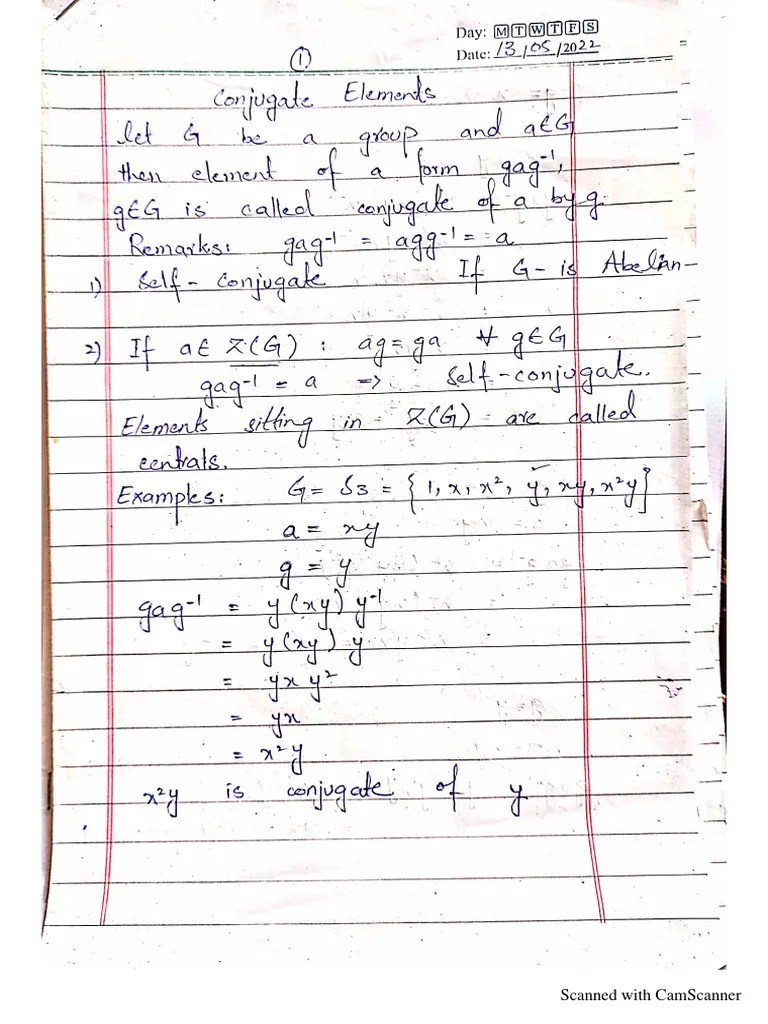 Day: M T W T F S
Date: 13/05/2022
①
Conjugate Elements
let G be a group and a∈G
then element of a form gag⁻¹,
g∈G is called conjugate of a by g.
Remarks: gag⁻¹ = agg⁻¹ = a
1) Self-conjugate If G-is Abelian-
2) If a∈ Z(G) : ag=ga ∀ g∈G
gag⁻¹ = a => Self-conjugate.
Elements sitting in Z(G) are called
centrals.
Examples: G= S3 = {1, x, x², y, xy, x²y}
a = xy
g = y
gag⁻¹ = y(xy) y⁻¹
= y(xy) y
= yx y²
= yx
= x²y
x²y is conjugate of y
Scanned with CamScanner